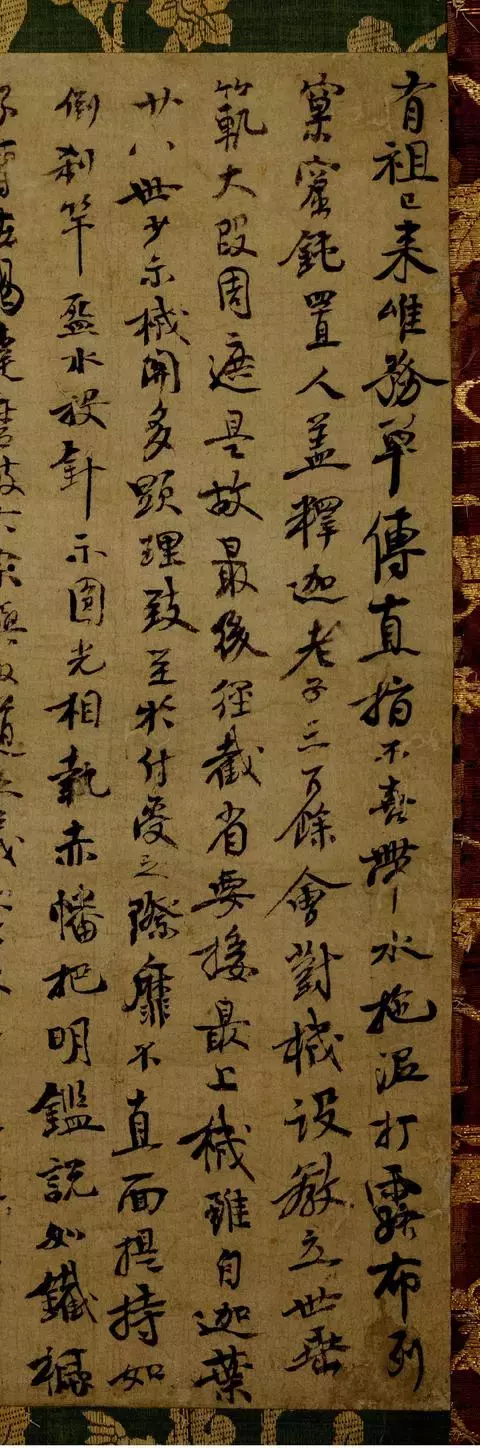 有祖已来唯務單傳直指不喜帶水拖泥打露布列
窠窟鈍置人盖釋迦老子三百餘會對機設教立世垂
範軌大段周遮是故最後徑截省要接最上機雖自迦葉
廿八世少示機開多顕理致至於付受之際靡不直面提持如
倒刹竿盋水投針示圓光相執赤幡把明鑑説如鐵橛